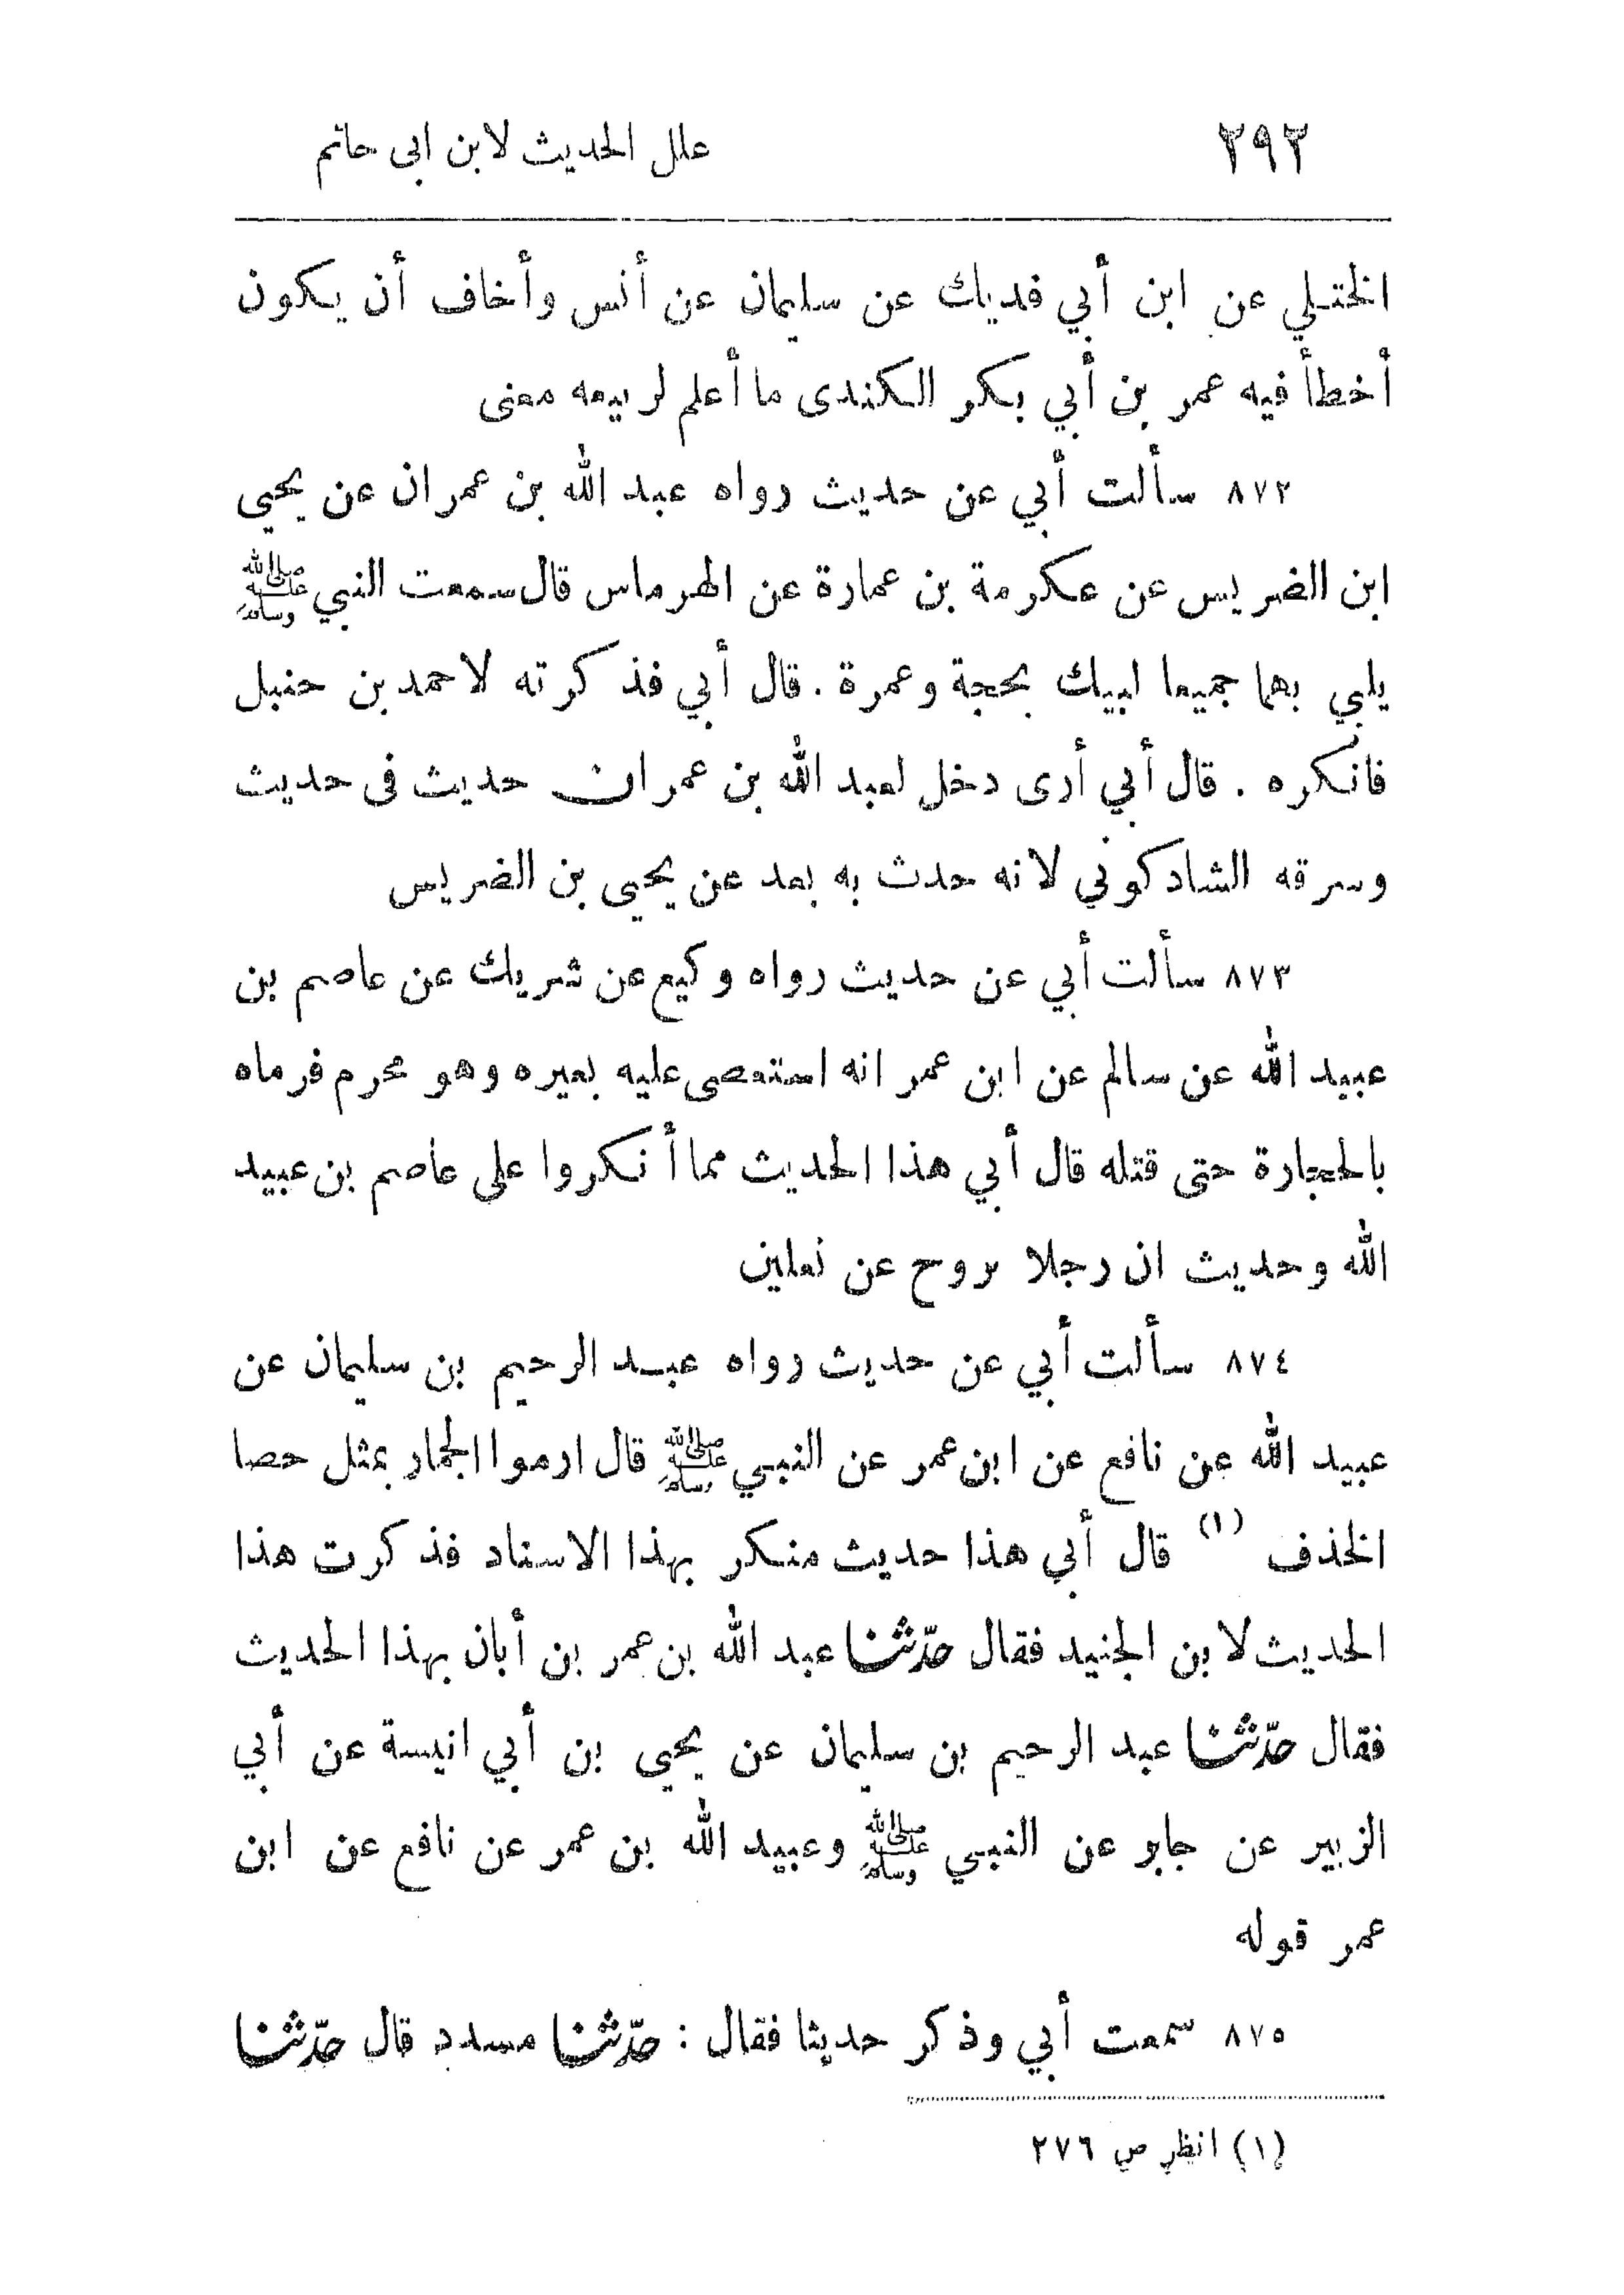 ٢٩٢ علل الحديث لابن ابى حاتم
الختلي عن ابن أبي فديك عن سليمان عن أنس وأخاف أن يكون
أخطأ فيه عمر بن أبي بكر الكندى ما أعلم لربيعه معنى
٨٧٢ سألت أبي عن حديث رواه عبد الله بن عمران عن يحيى
ابن الضريس عن عكرمة بن عمارة عن الهرماس قال سمعت النبي ﷺ
يلبي بهما جميعا لبيك بحجة وعمرة . قال أبي فذكرته لاحمد بن حنبل
فانكره . قال أبي أرى دخل لعبد الله بن عمران حديث فى حديث
وسرقه الشاذكوني لانه حدث به بعد عن يحيى بن الضريس
٨٧٣ سألت أبي عن حديث رواه وكيع عن شريك عن عاصم بن
عبيد الله عن سالم عن ابن عمر انه استعصى عليه بعيره وهو محرم فرماه
بالحجارة حتى قتله قال أبي هذا الحديث مما أنكروا على عاصم بن عبيد
الله وحديث ان رجلا تزوج عن نعلين
٨٧٤ سألت أبي عن حديث رواه عبد الرحيم بن سليمان عن
عبيد الله عن نافع عن ابن عمر عن النبي ﷺ قال ارموا الجمار بمثل حصا
الخذف (١) قال أبي هذا حديث منكر بهذا الاسناد فذكرت هذا
الحديث لابن الجنيد فقال حدّثنا عبد الله بن عمر بن أبان بهذا الحديث
فقال حدّثنا عبد الرحيم بن سليمان عن يحيى بن أبي انيسة عن أبي
الزبير عن جابر عن النبي ﷺ وعبيد الله بن عمر عن نافع عن ابن
عمر قوله
٨٧٥ سمعت أبي وذكر حديثا فقال : حدّثنا مسدد قال حدّثنا
(١) انظر ص ٢٧٦